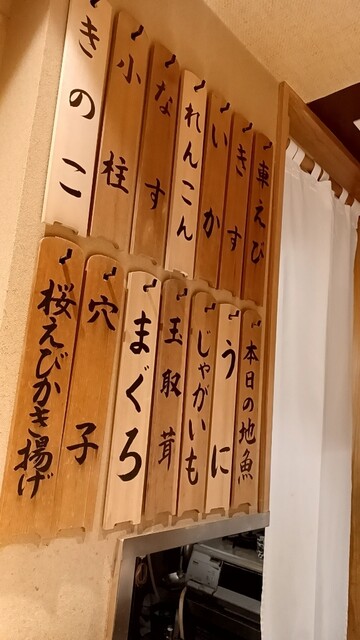 車えび
きす
いか
れんこん
なす
小柱
きのこ
本日の地魚
うに
じゃがいも
玉取茸
まぐろ
穴子
桜えびかき揚げ